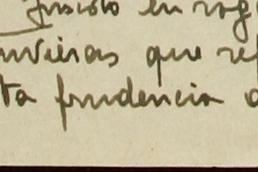 insisto en rog
nvieras que re
ta prudencia a